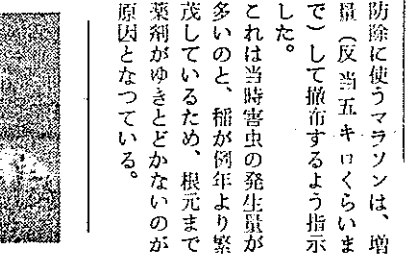 防除に使うマラソンは、増
量（反当五キロくらいま
で）して撒布するよう指示
した。
これは当時害虫の発生量が
多いのと、稲が例年より繁
茂しているため、根元まで
薬剤がゆきとどかないのが
原因となつている。